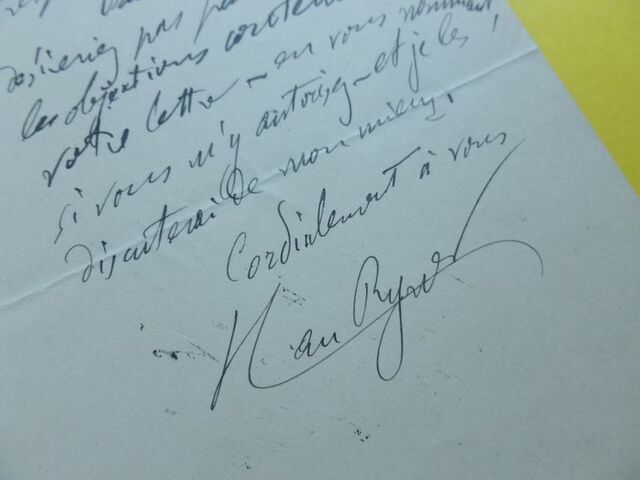 pas
les objections
votre lettre – en vous nommant
si vous m'y autorisez – et je les
discuterai de mon mieux.
Cordialement à vous
Han Ryner